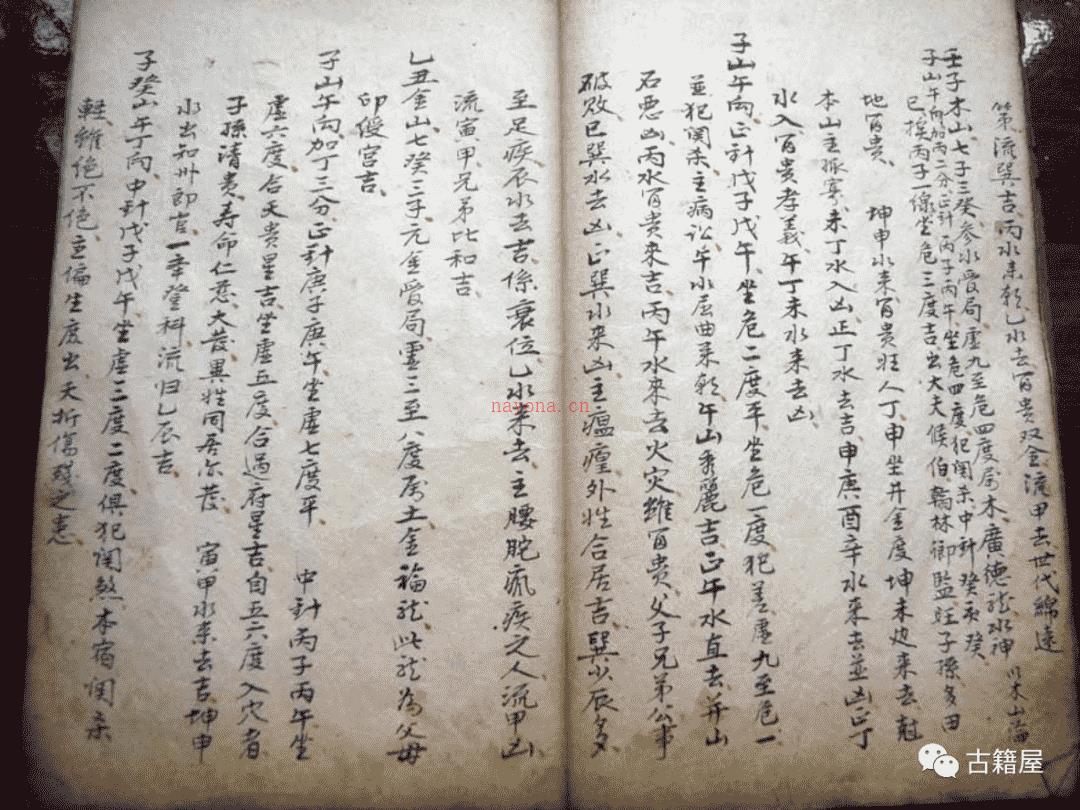 第流巽吉丙水来乾乙水去百贵双全流甲去世代綿遠
壬子木山七子三癸参水受局虚九至危四度属木廣德龙水神
子山午向加丙二分正針丙子丙午坐危四度犯関杀中針癸亥癸
已挨丙子一線坐危三度吉出大夫候伯翰林御監旺子孫多田
地百貴 坤申水来百貴旺人丁申坐井金度坤未边来去冠
本山主孤寡未丁水入凶正丁水去吉申庚酉辛水来去並凶正丁
水入百贵孝義午丁未水来去凶
子山午向正針戊子戊午坐危二度平坐危一度犯差虚九至危一
並犯関杀主病讼午水屈曲来朝午山秀麗吉正午水直去并山
石悪凶丙水百贵来吉丙午水来去火灾雖百贵父子兄弟公事
破败巳巽水去凶正巽水来凶主瘟瘟外性合居吉巽少辰多
至足疾辰水去吉係衰位乙水来去主腰駝瘋疾之人流甲凶
流寅甲兄弟比和吉
乙丑金山七癸三子元金受局虚三至八度属土金福龙此龙為父母
印綬宫吉
子山午向加丁三分正針庚子庚午坐虚七度平 中針丙子丙午坐
虚六度合天贵星吉坐虚五度合過府星吉自五六度入穴者
子孫清贵寿命仁慈大发異性同居尔发 寅甲水来去吉坤申
水出知州郎官一幸登科流归乙辰吉
子癸山午丁向中針戊子戊午坐虚三度二度俱犯関煞本宿関杀
軽雖绝不绝主偏生度出夭折傷残之患
nayona.cn
古籍屋